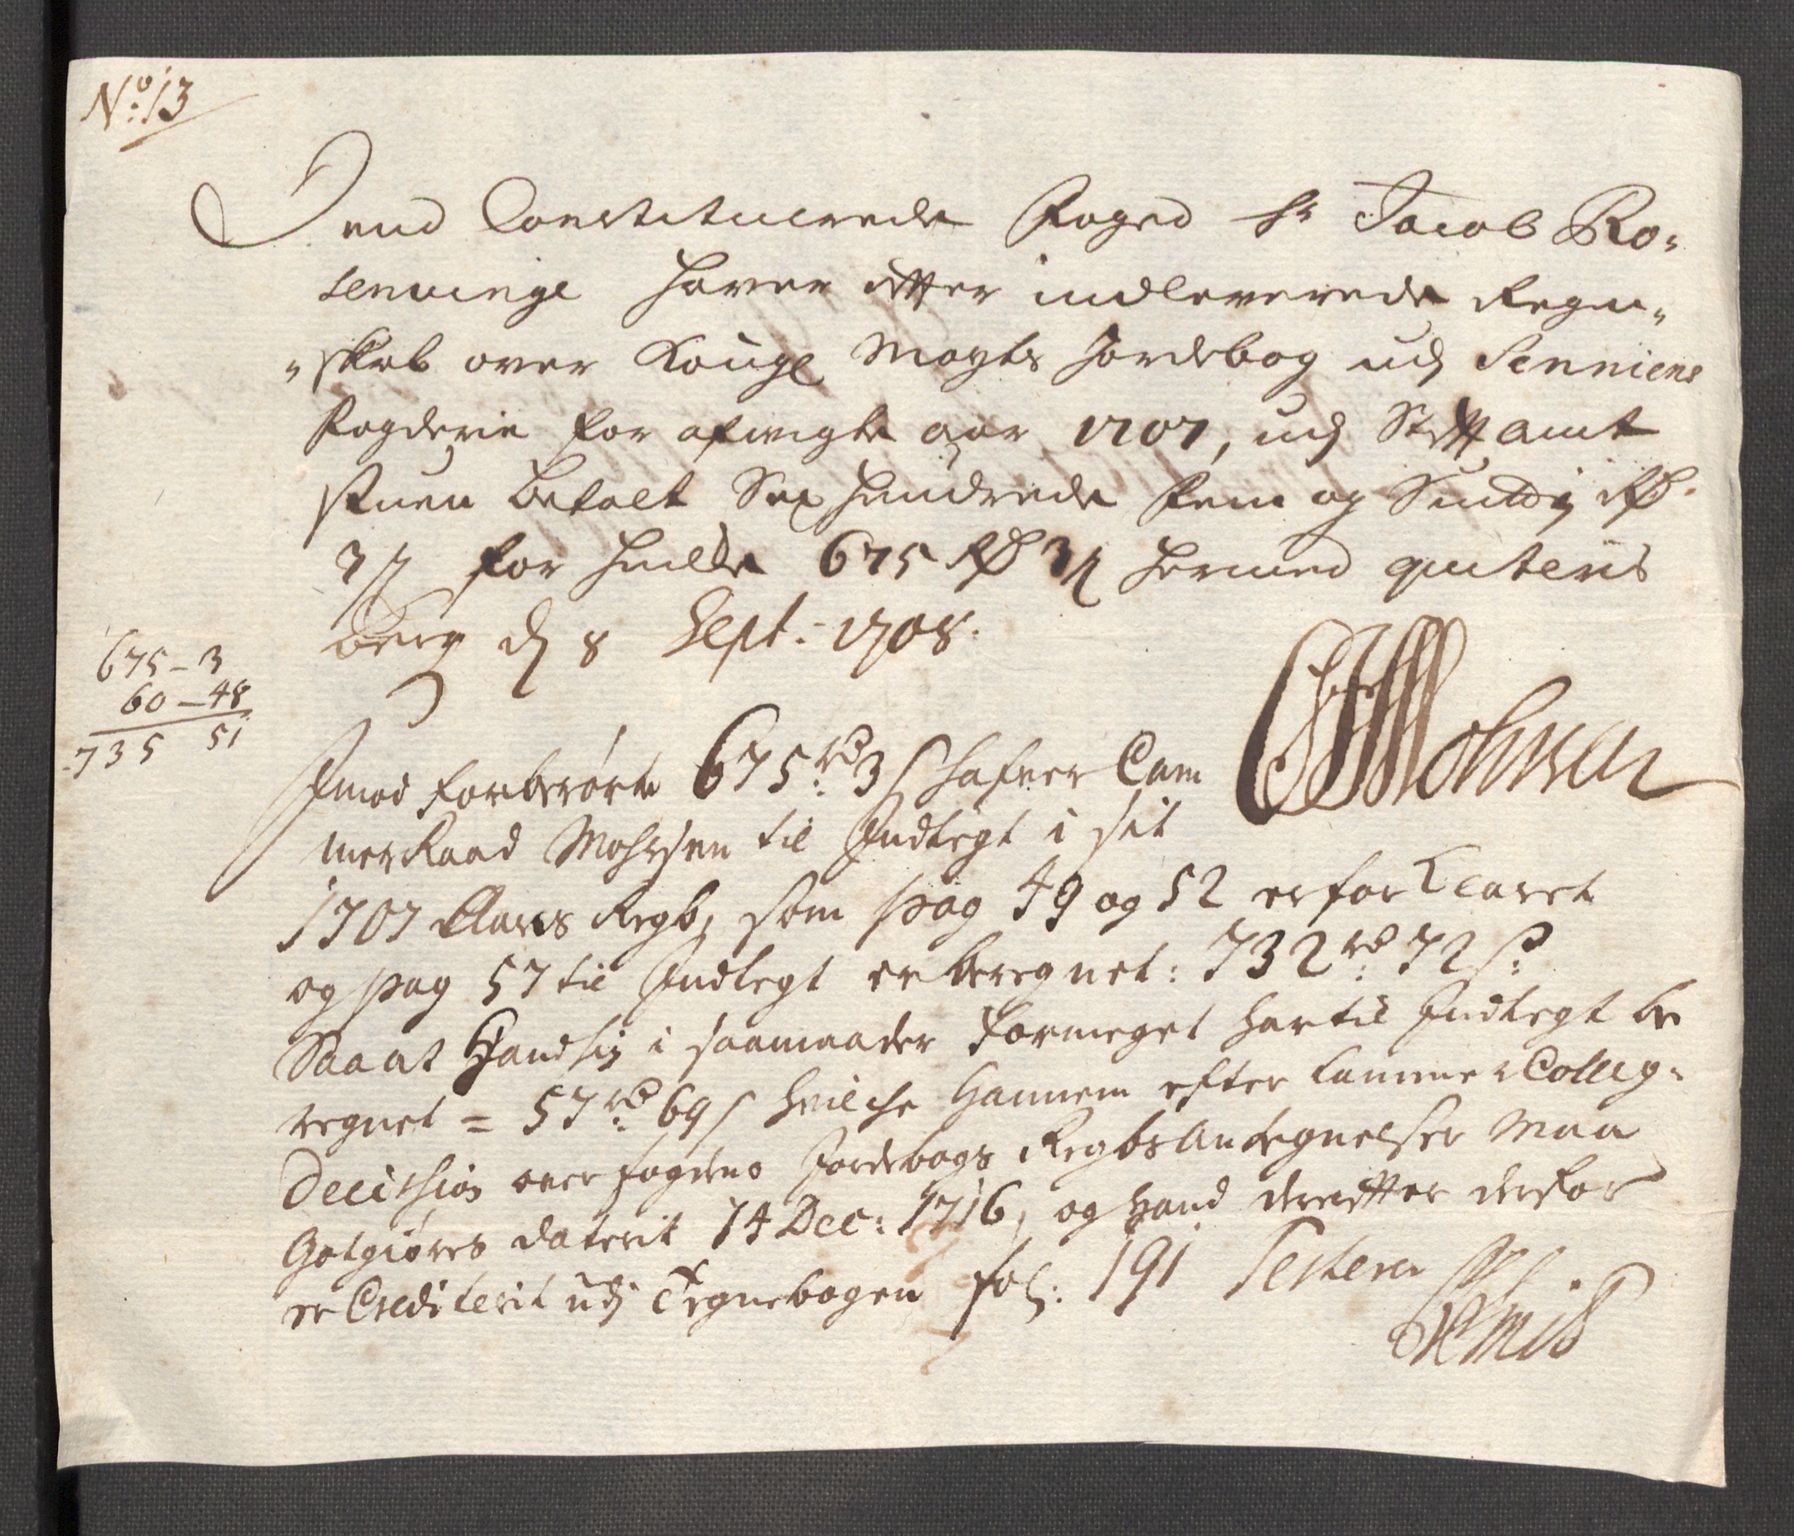 No: 13
Dend Constituerede Foged Sr Jacob Ro-
senvinge haver efter indleverede Regn-
skab over Kongl Mayts Jordebog udj Senniens
Fogderie for afvigte aar 1707, udj Stiftamt
stuen betalt Sex hundrede fem og Siutti Rd.
3 s for hvilke 675 Rd 3 s hermed quiteris
Berg d 8 Sept:- 1708.
675-3
60-48
735 51
Imod forberørte 675 rd: 3 s hafver Cam
mer Raad Mohrsen til Indtegt i sit
1707 Aars Regb, som pag 49 og 52 er forklaret
og pag 57 til Indtegt er beregnet: 732 rd: 72 s:
Saa at Hand sig i saamaader formeget har til Indtegt be
regnet = 57 rd: 69 s hvilche Hannem efter Cammer Colleg-
Decision over fogdens Jordebogs Regbs Antegnelser maa
Gotgiøres daterit 14 Dec: 1716, og hand derefter derfor
er Crediterit udj Tegnebogen fol: 191 Testerer